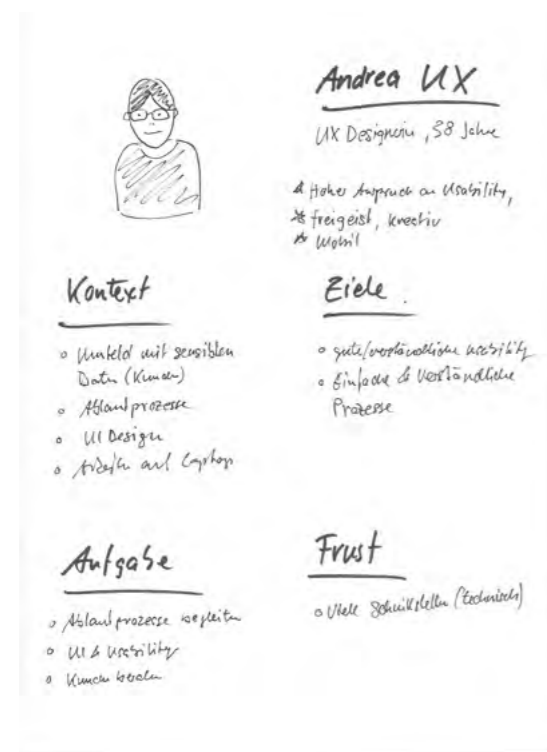 Andrea UX
UX Designerin, 38 Jahre
Hoher Anspruch an Usability,
freigeist, kreativ
Mobil
Kontext
Umfeld mit sensiblen
Daten (Kunden)
Ablaufprozesse
UI Design
Arbeiten auf Laptop
Ziele
gute/verständliche usability
Einfache & Verständliche
Prozesse
Aufgabe
Ablaufprozesse begleiten
UI & Usability
Kunden beraten
Frust
Viele Schnittstellen (technisch)